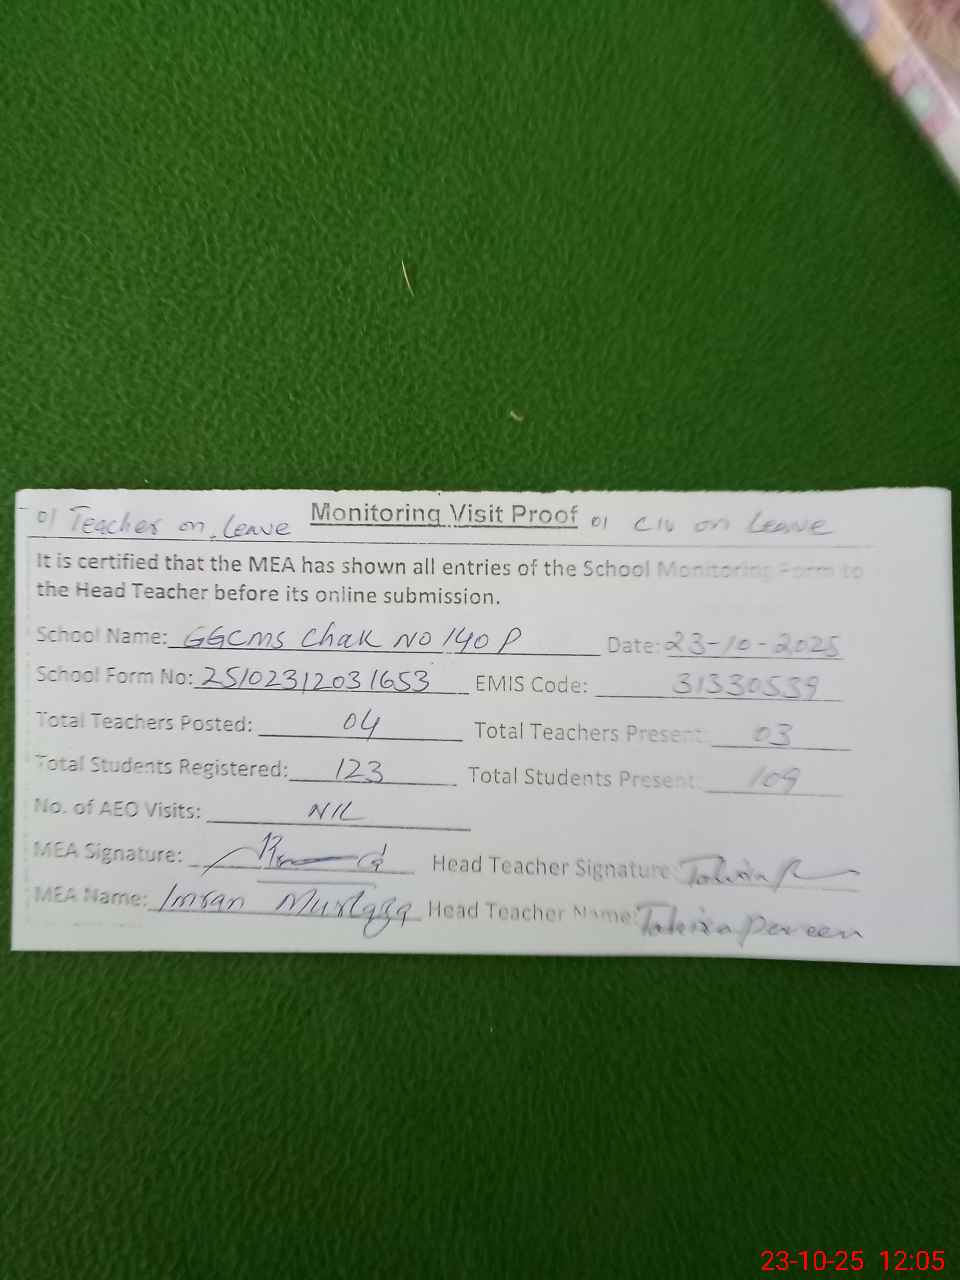 01 Teacher on Leave Monitoring Visit Proof 01 C IV on Leave
It is certified that the MEA has shown all entries of the School Monitoring Form to
the Head Teacher before its online submission.
School Name: GGCMS Chak NO 140 P Date: 23-10-2025
School Form No: 2510231203 1653 EMIS Code: 31330539
Total Teachers Posted: 04 Total Teachers Present: 03
Total Students Registered: 123 Total Students Present: 109
No. of AEO Visits: NIL
MEA Signature: Head Teacher Signature:
MEA Name: Imran Murtaza Head Teacher Name: Perveen
23-10-25 12:05